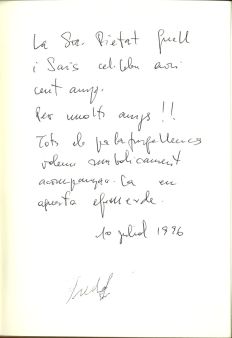 La Sra. Pietat Güell
i Saris celebra avui
cent anys.
Per molts anys!!
Tots els palafrugellencs
volem simbolicament
acompanyar-la en
aquesta efemèride.
10 juliol 1996